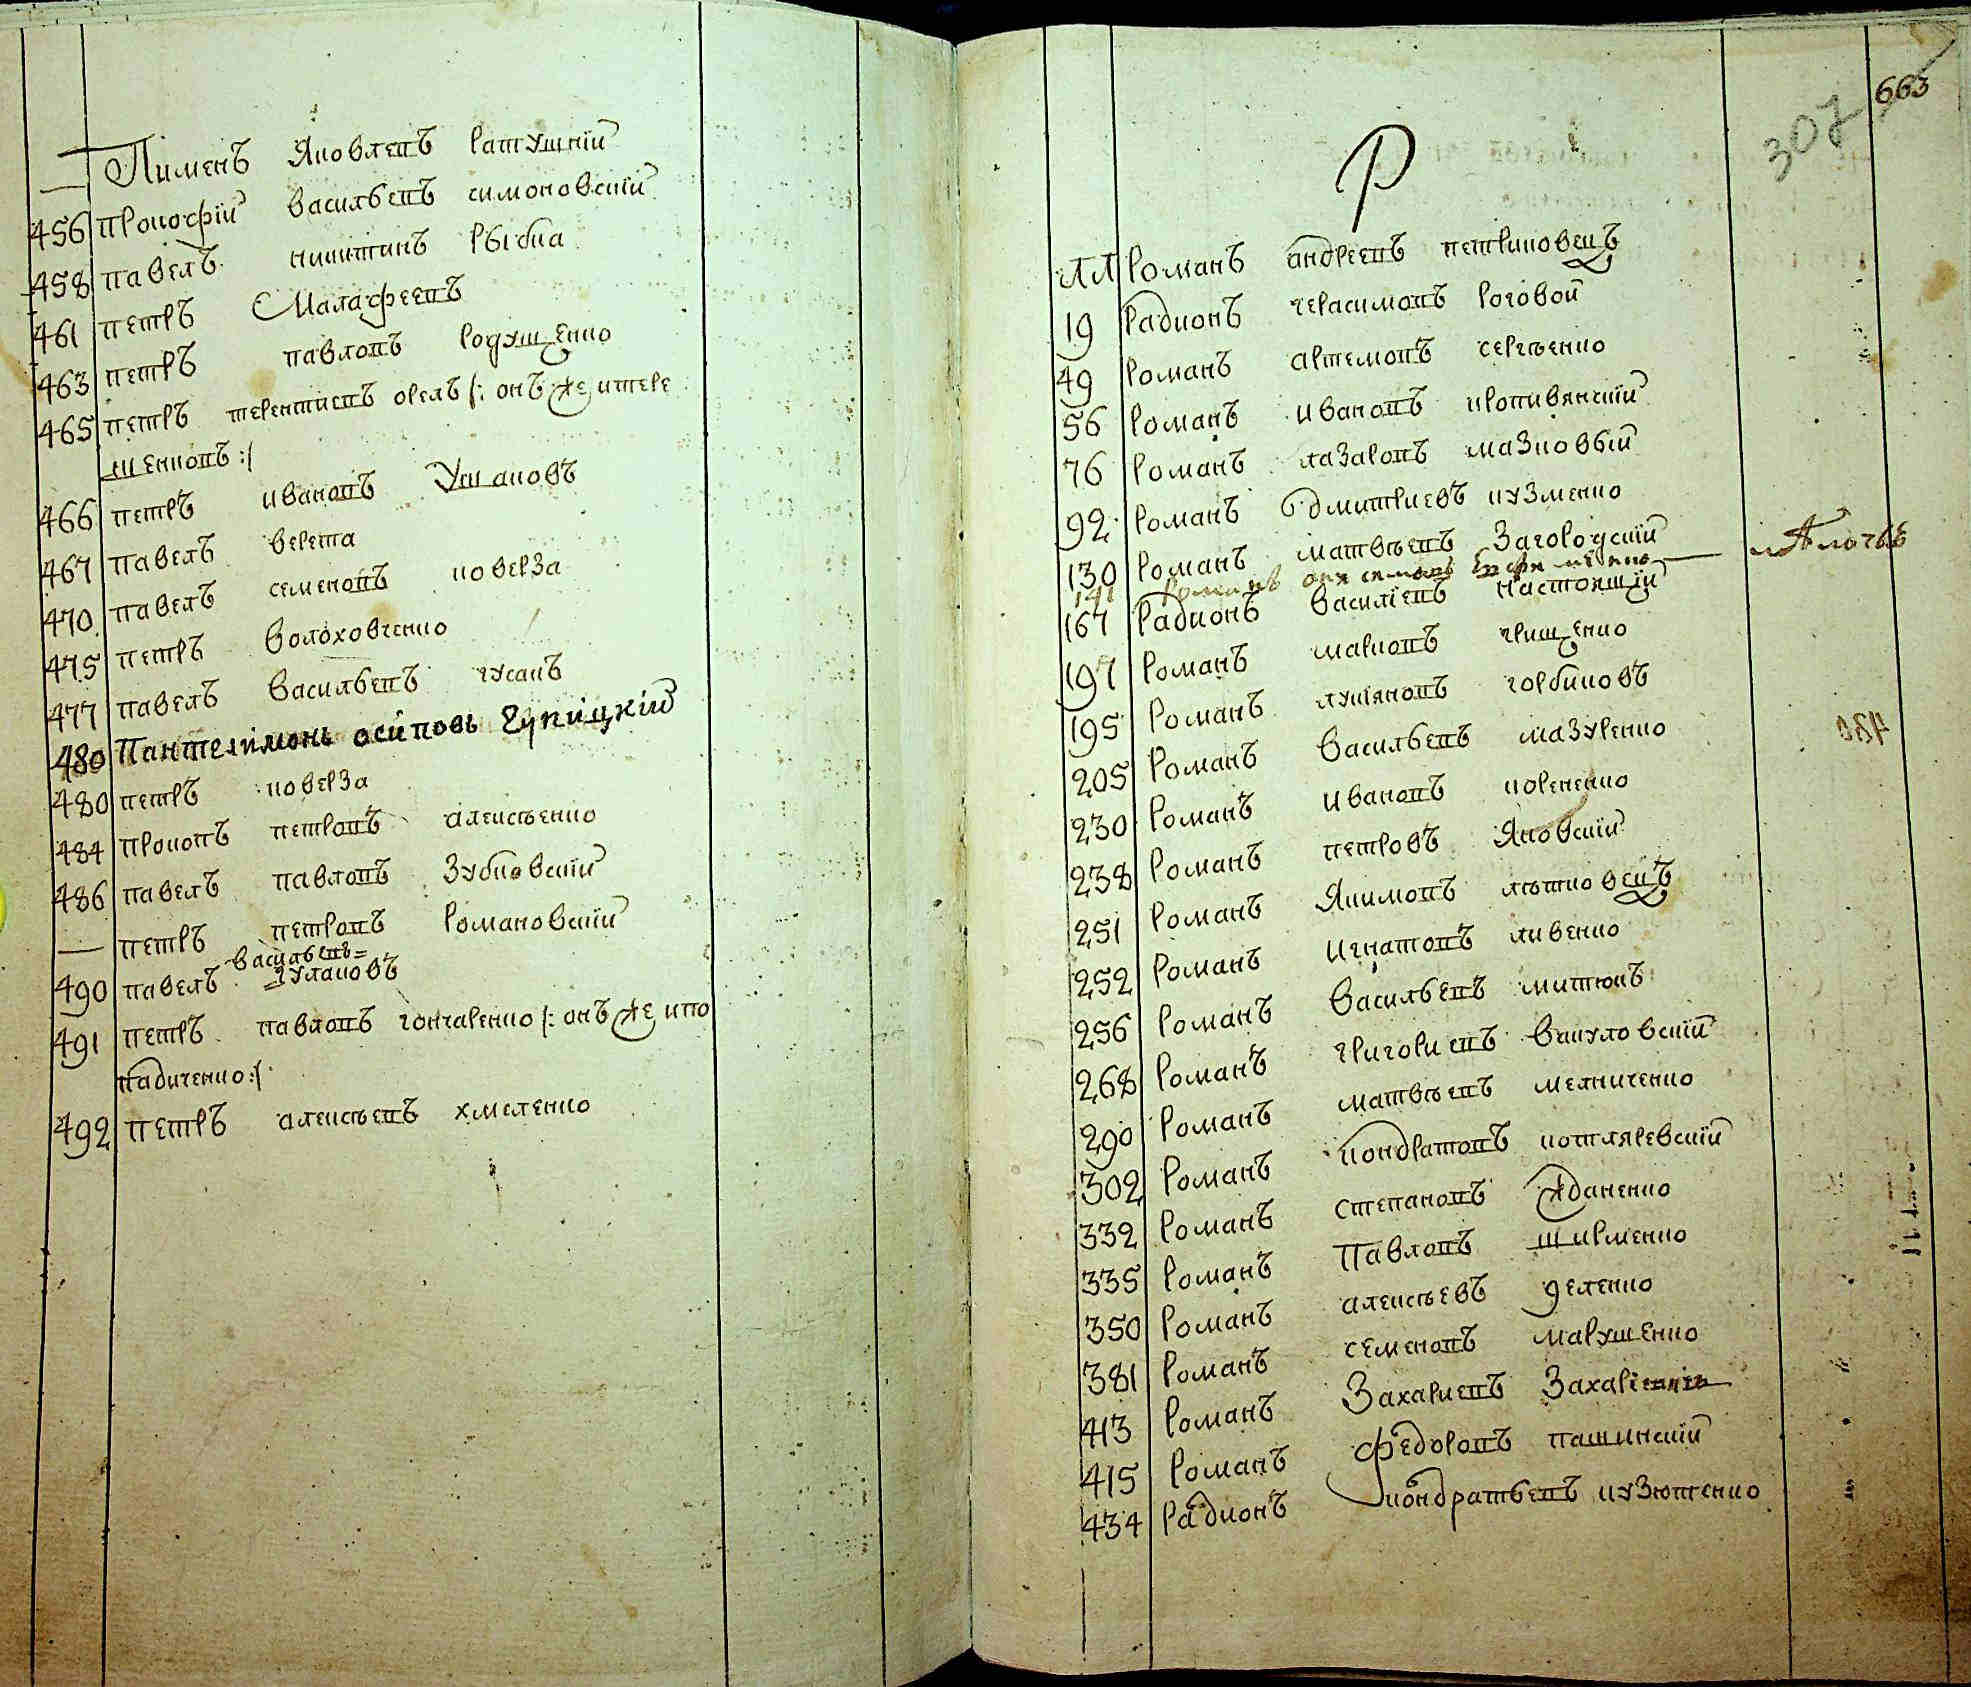 — Пименъ Яковлевъ Ратушнїй
456 Прокофїй Васильевъ Симоновскїй
458 Павелъ Никитинъ Рыбка
461 Петръ Малафеевъ
463 Петръ Павловъ Родущенко
465 Петръ Терентиевъ Орелъ /: онъ же и Тере
щенковъ :/
466 Петръ Ивановъ Ушаковъ
467 Павелъ Верета
470 Павелъ Семеновъ Коверза
475 Петръ Волоховченко
477 Павелъ Васильевъ Гусакъ
480 Пантелимонъ Осиповъ
480 Петръ Коверза
484 Прокопъ Петровъ Алексѣенко
486 Павелъ Павловъ Зубковскїй
— Петръ Петровъ Романовскїй
Васильевъ
490 Павелъ Гулаковъ
491 Петръ Павловъ Гончаренко /: онъ же и Ко
падиченко :/
492 Петръ Алексѣевъ Хмеленко
663
307
Р
лл Романъ Андреевъ Петриковецъ
19 Радионъ Герасимовъ Роговой
49 Романъ Артемовъ Сергѣенко
56 Романъ Ивановъ Кропивянскїй
76 Романъ Лазаровъ Мазковый
92 Романъ Дмитриевъ Кузменко
130 Романъ Матвѣевъ Загородскїй
141 Романъ
167 Радионъ Василїевъ Настоящїй
197 Романъ Марковъ Грищенко
195 Романъ Лукїяновъ Горбиковъ
205 Романъ Васильевъ Мазуренко
230 Романъ Ивановъ Корененко
238 Романъ Петровъ Яновскїй
251 Романъ Якимовъ Лѣтковецъ
252 Романъ Игнатовъ Ливенко
256 Романъ Васильевъ Митюкъ
268 Романъ Григориевъ Вакуловскїй
290 Романъ Матвѣевъ Мелниченко
302 Романъ Кондратовъ Котляревскїй
332 Романъ Степановъ Жданенко
335 Романъ Павловъ Ширменко
350 Романъ Алексѣевъ Деленко
381 Романъ Семеновъ Марушенко
413 Романъ Захариевъ
415 Романъ Федоровъ Пашинскїй
434 Радионъ Кондратьевъ Кузютенко